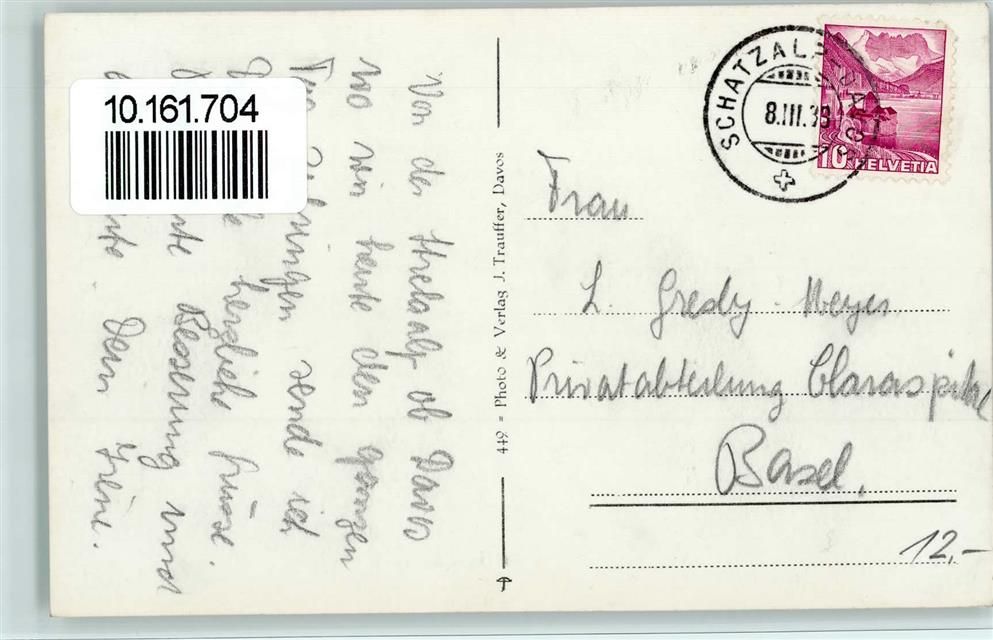 10.161.704
Von der Strelaalp ob Davos
wo wir heute den ganzen
sende ich
herzliche Grüsse.
Besserung und
Dein Irène.
449 = Photo & Verlag J. Trauffer, Davos
SCHATZALP-DAVOS
8.III.38
10 HELVETIA
Frau
L. Gredy-Meyer
Privatabteilung Claraspital
Basel.
12,-